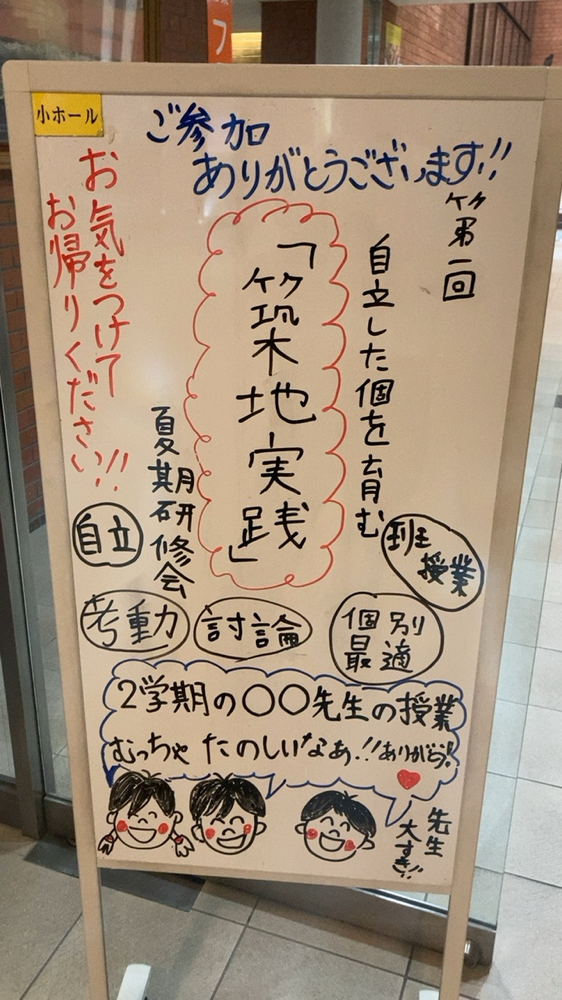 フ
小ホール
ご参加
ありがとうございます!!
第一回
自立した個を育む
「築地実践」
夏期研修会
お気をつけて
お帰りください!!
自立
班
授業
考動
討論
個別
最適
2学期の〇〇先生の授業
むっちゃ たのしいなぁ!!ありがとう!
先生
大すき!!